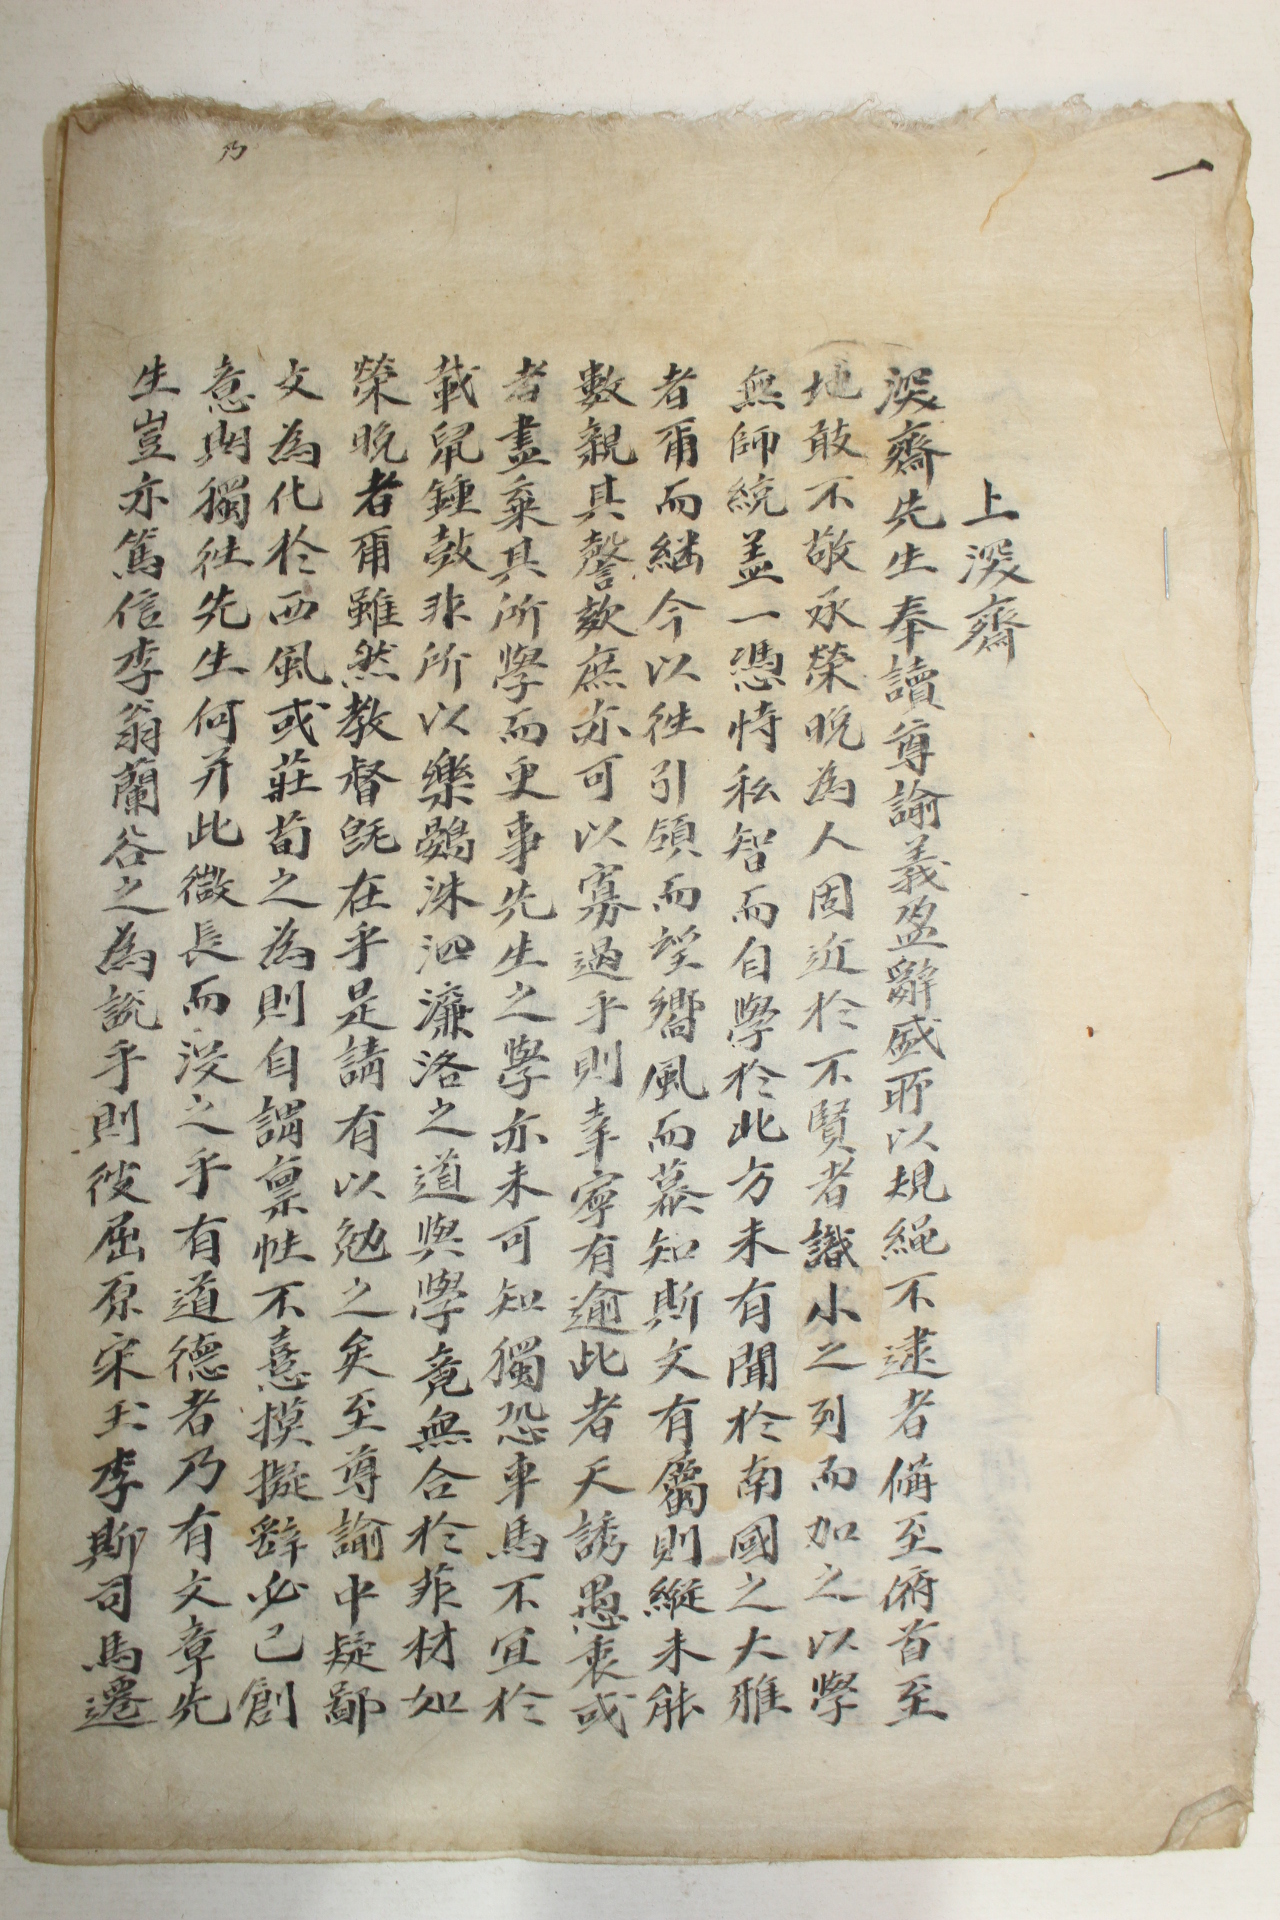 一
上深齋
深齋先生奉讀尊諭義盈辭盛所以規繩不逮者備至俯首至
地敢不敬承榮晩為人固近於不賢者識小之列而加之以學
無師統盖一憑恃私智而自學於此方未有聞於南國之大雅
者甭而継今以徃引領而望嚮風而慕知斯文有屬則縱未能
數親其謦欬庶亦可以寡過乎則幸寧有逾此者天誘愚衷或
者盡棄其所學而更事先生之學亦未可知獨恐車馬不宜於
載鼠鍾鼓非所以樂鷃洙泗濂洛之道與學竟無合於菲材如
榮晩者甭雖然教督旣在乎是請有以勉之矣至尊諭中疑鄙
文為化於西風或莊荀之為則自謂稟性不憙摸擬辭必己創
意期獨徃先生何并此微長而沒之乎有道德者乃有文章先
生豈亦篤信李翁蘭谷之為說乎則彼屈原宋玉李斯司馬遷
乃